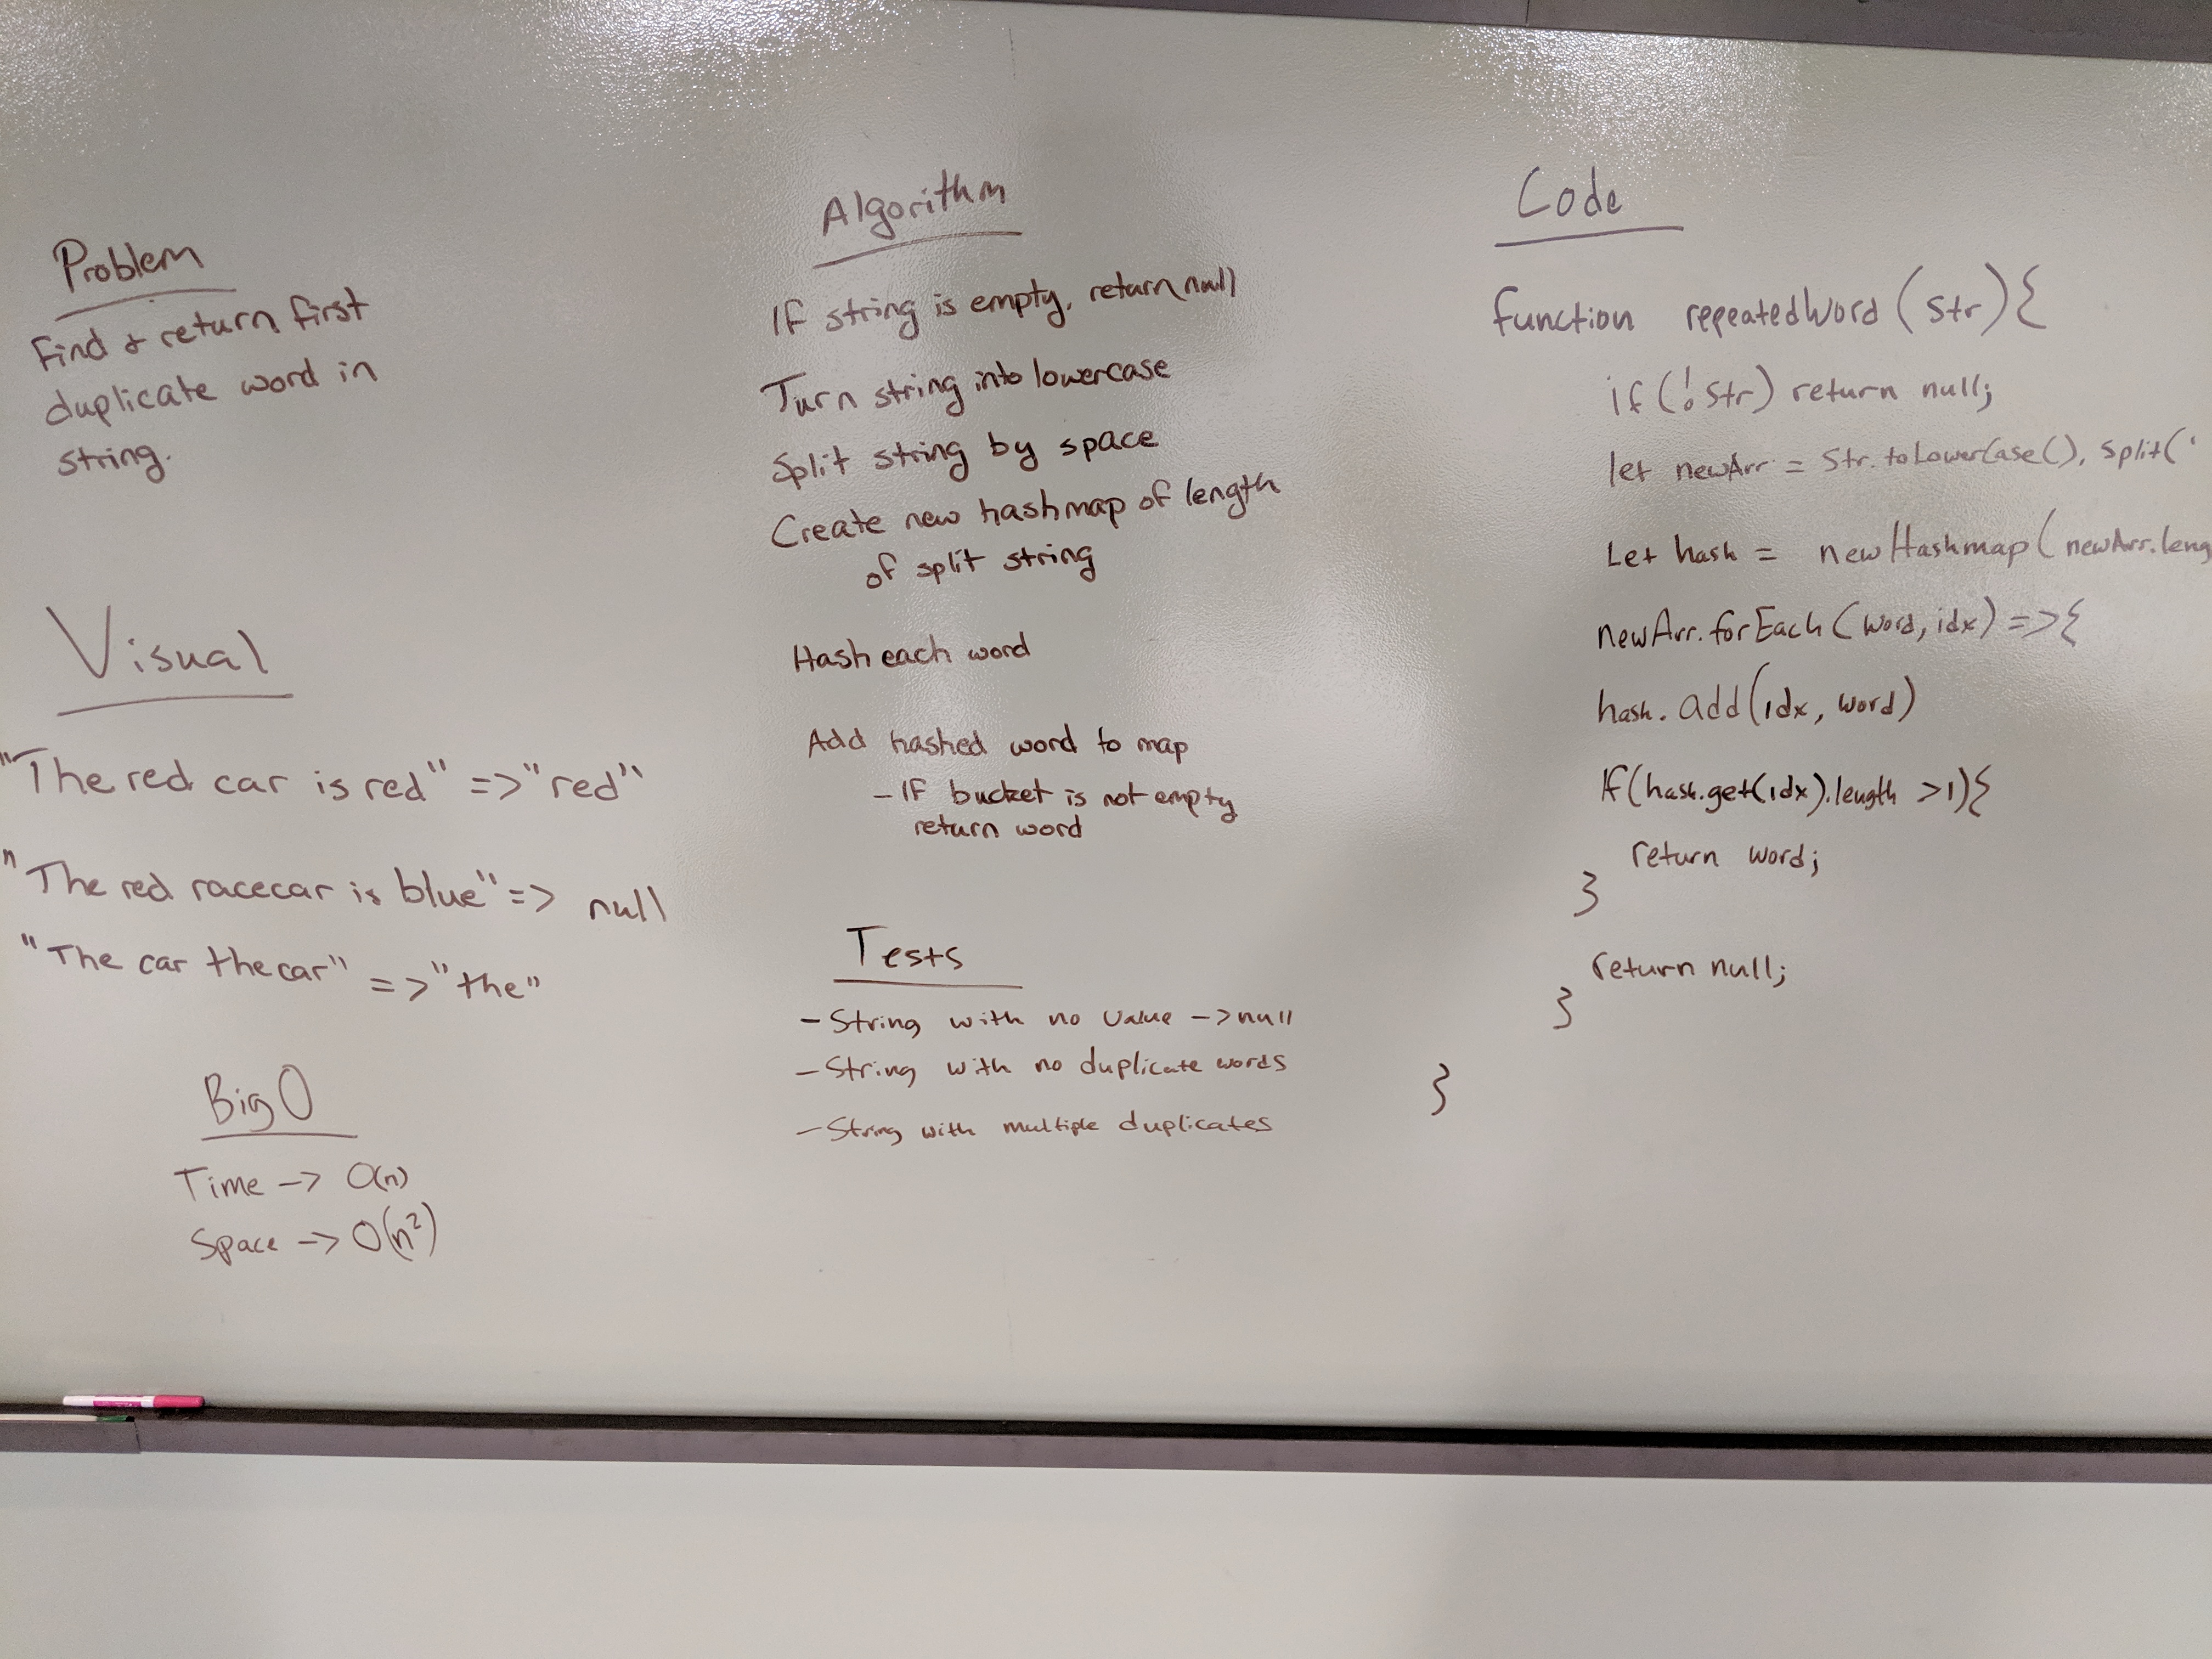 Problem
Find & return first
duplicate word in
string.
Visual
"The red car is red" => "red"
"The red racecar is blue" => null
"The car the car" => "the"
Big O
Time -> O(n)
Space -> O(n²)
Algorithm
If string is empty, return null
Turn string into lowercase
Split string by space
Create new hashmap of length
of split string
Hash each word
Add hashed word to map
- If bucket is not empty
return word
Tests
- String with no value -> null
- String with no duplicate words
- String with multiple duplicates
Code
function repeatedWord (str) {
if (!str) return null;
let newArr = str.toLowerCase(), split('
Let hash = new Hashmap (newArr.leng
newArr.forEach (word, idx) => {
hash.add(idx, word)
If (hash.get(idx).length > 1) {
return word;
}
return null;
}
}